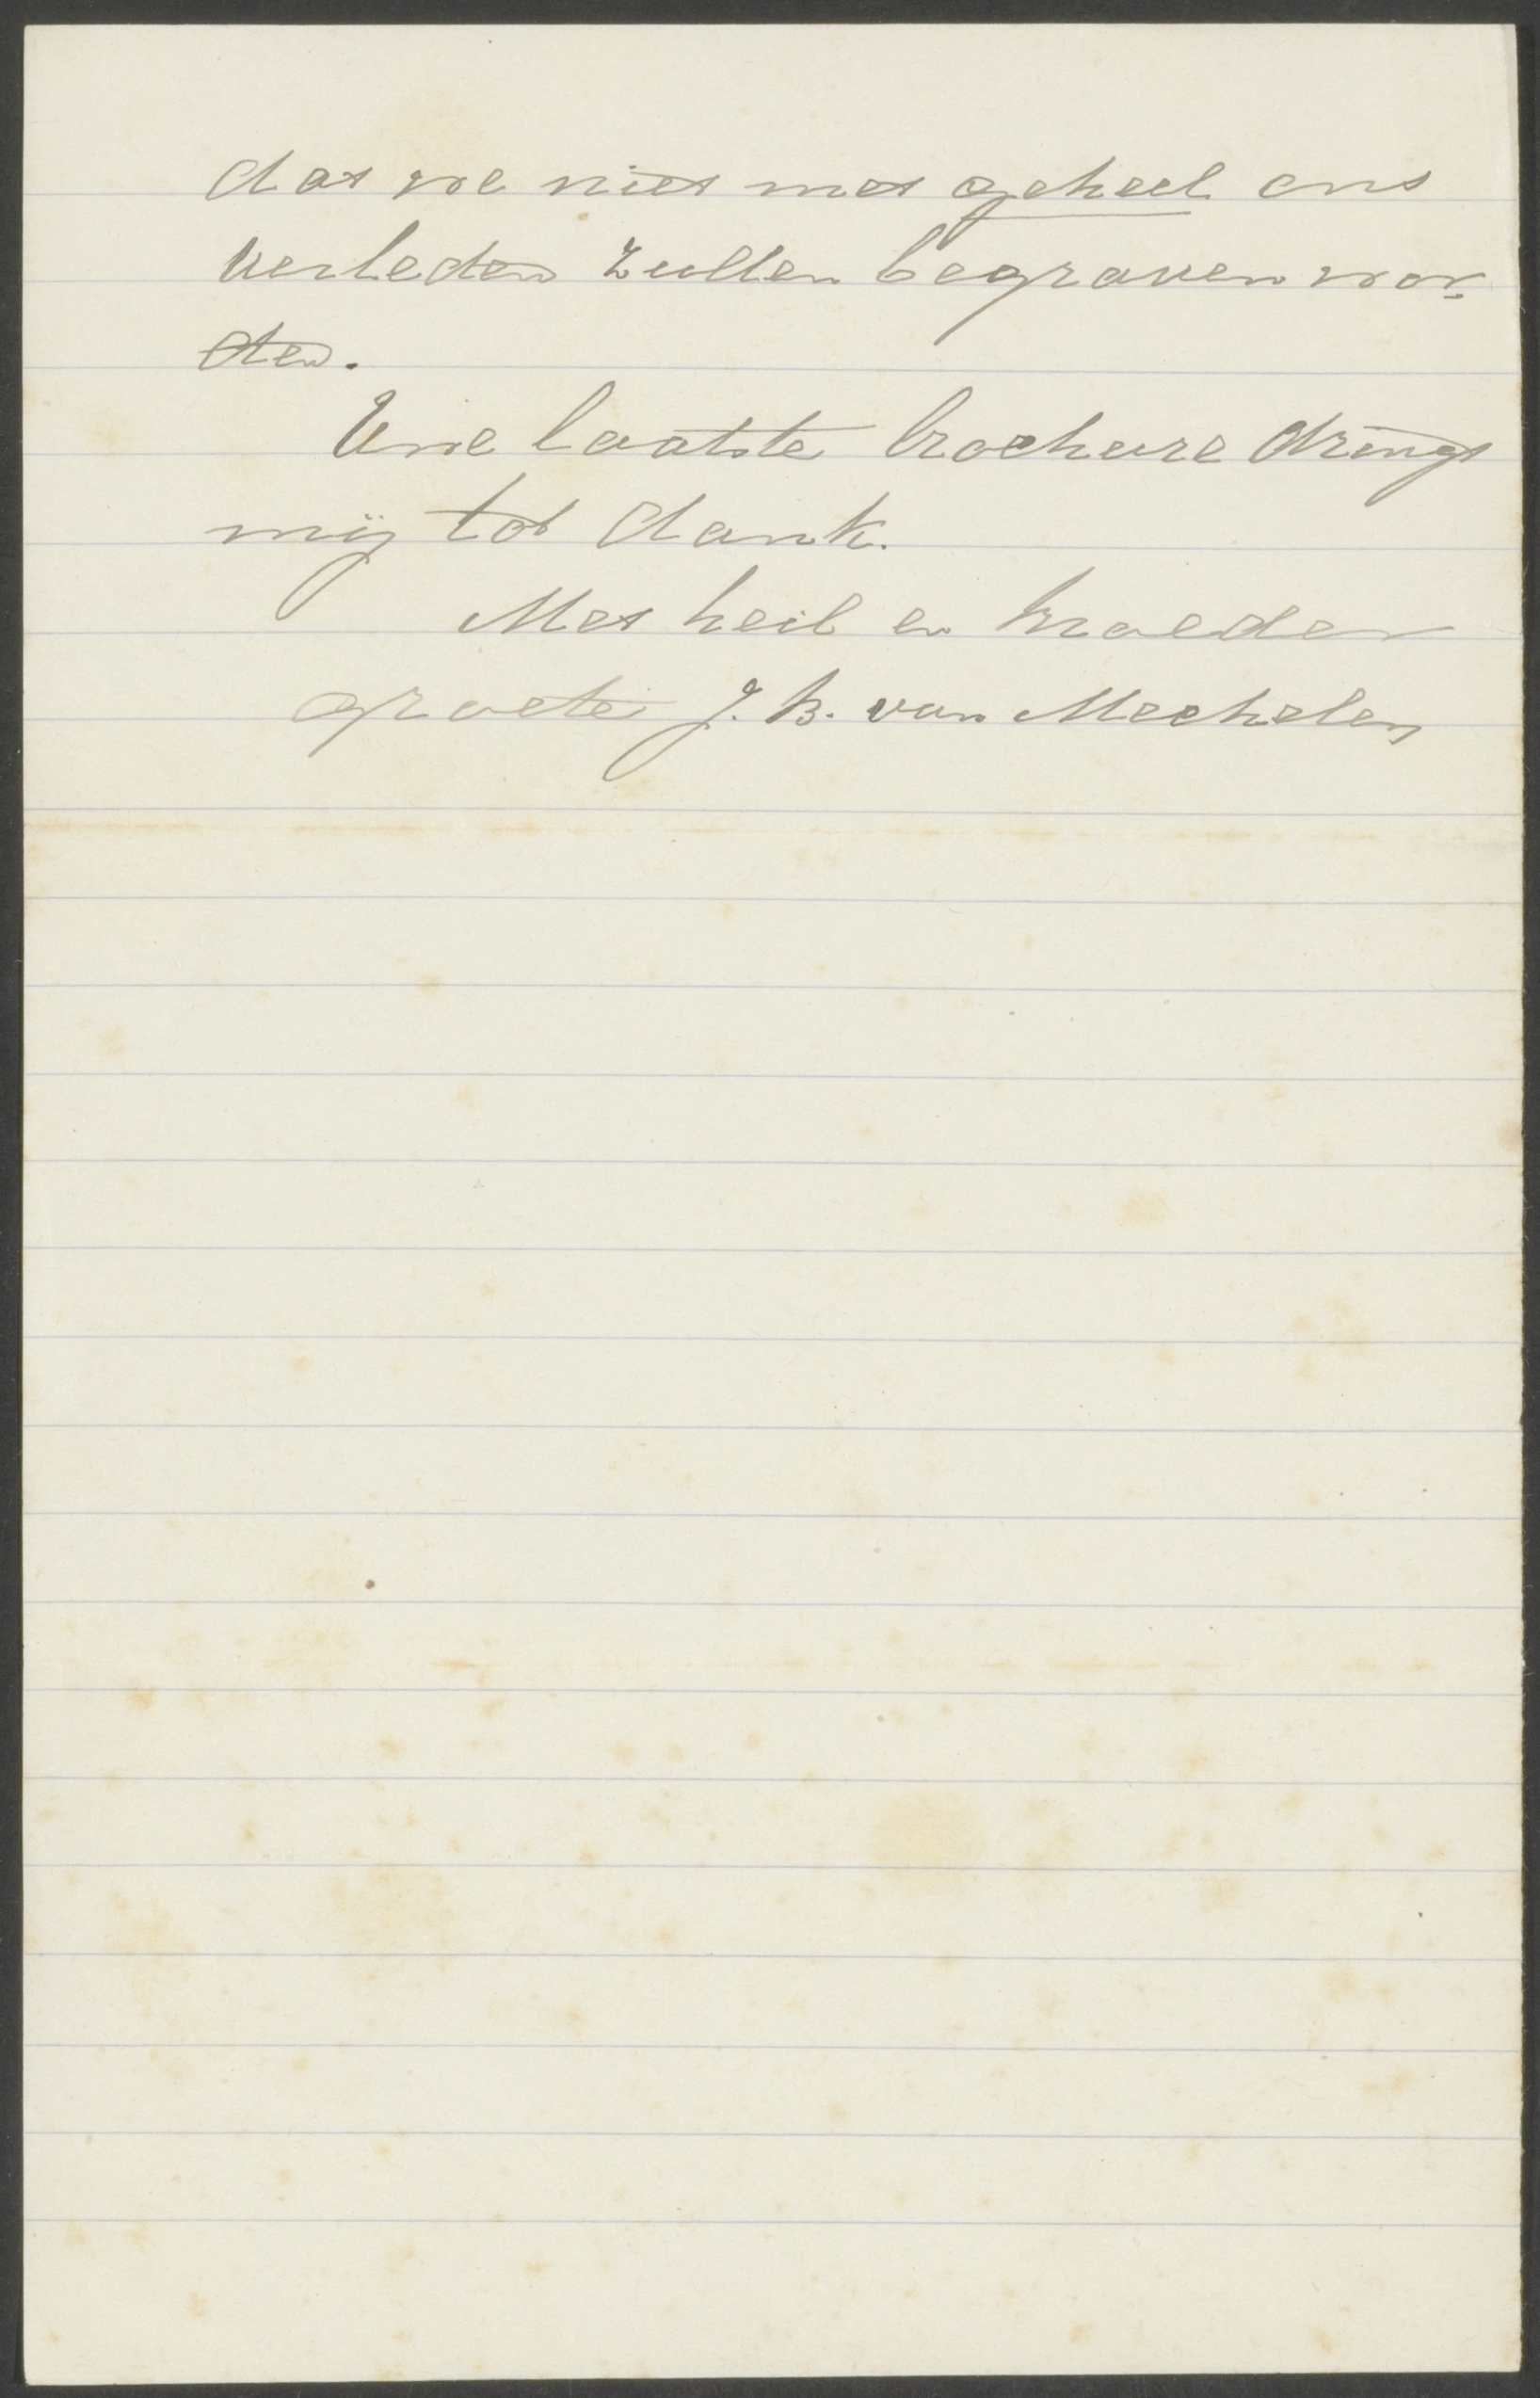 dat we niet met geheel ons
verleden zullen begraven wor-
den.
Uwe laatste brochure dringt
mij tot dank.
Met heil en broeder
groete J. B. van Mechelen